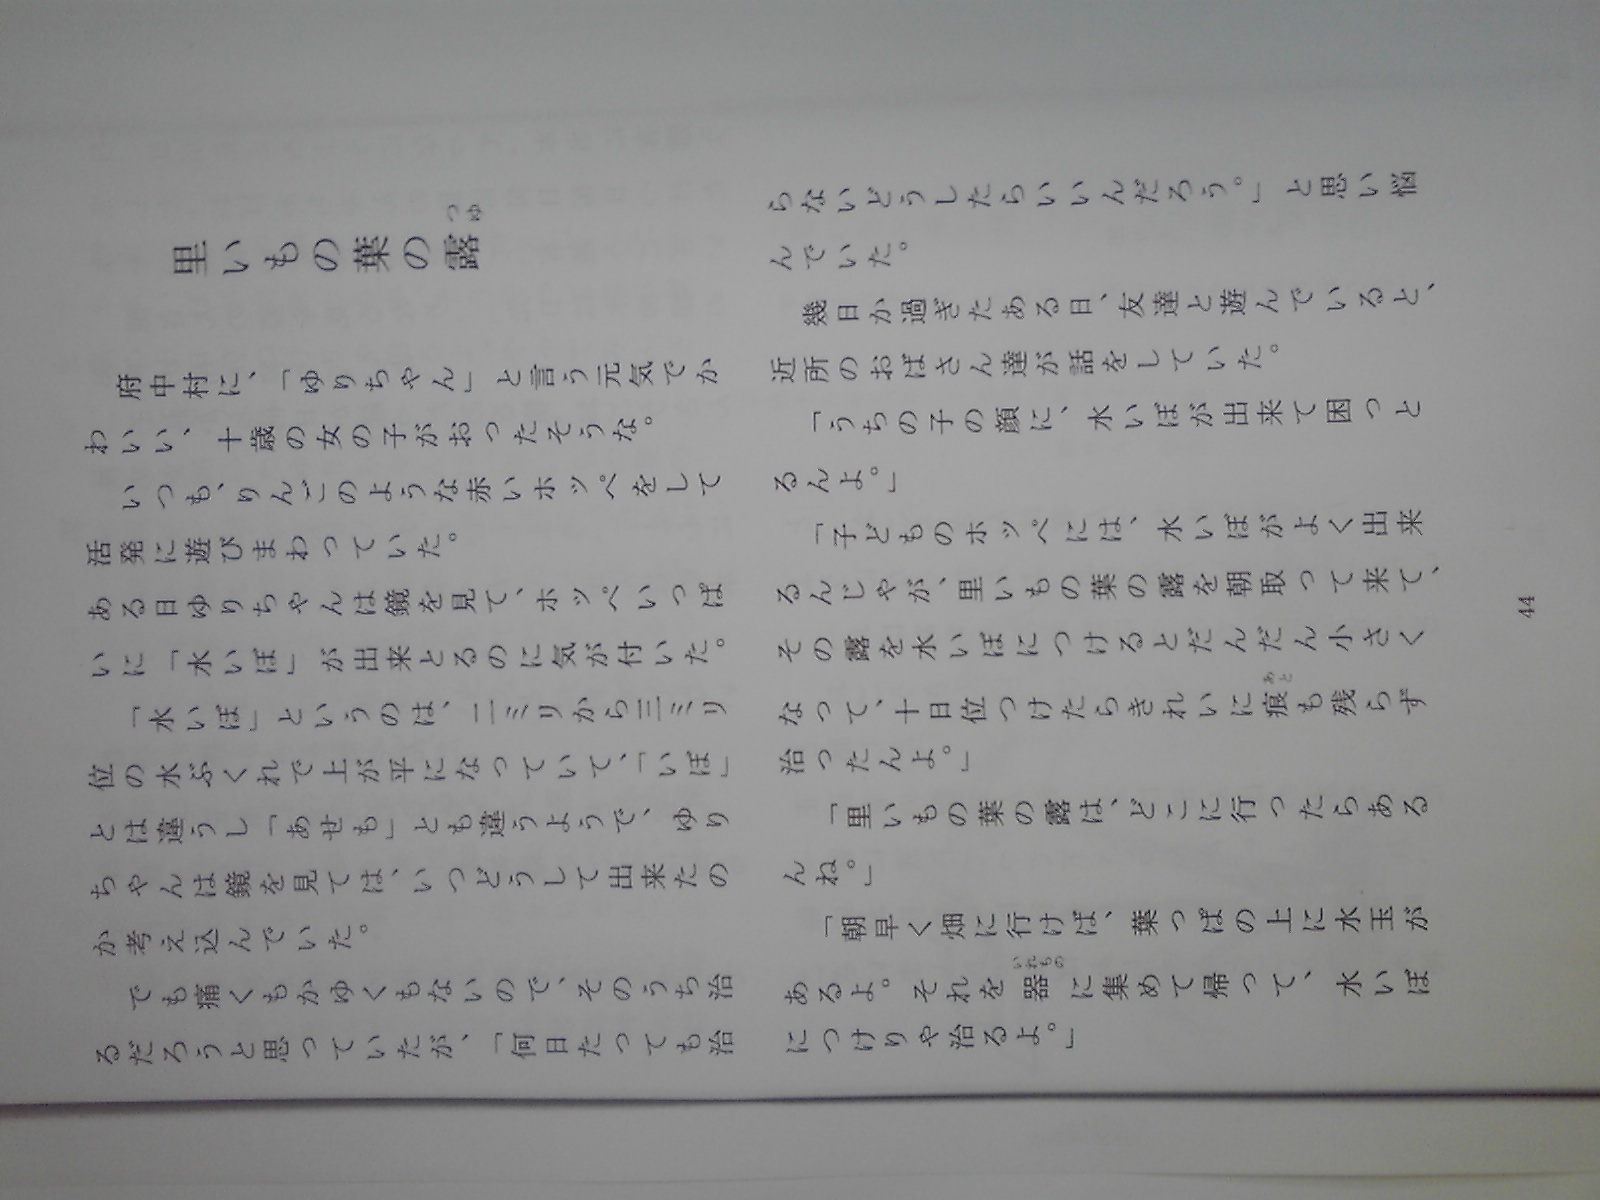 里いもの葉の露
つゆ
府中村に、「ゆりちゃん」と言う元気でか
わいい、十歳の女の子がおったそうな。
いつも、りんごのような赤いホッペをして
活発に遊びまわっていた。
ある日ゆりちゃんは鏡を見て、ホッペいっぱ
いに「水いぼ」が出来とるのに気が付いた。
「水いぼ」というのは、二ミリから三ミリ
位の水ぶくれで上が平になっていて、「いぼ」
とは違うし「あせも」とも違うようで、ゆり
ちゃんは鏡を見ては、いつどうして出来たの
か考え込んでいた。
でも痛くもかゆくもないので、そのうち治
るだろうと思っていたが、「何日たっても治
らないどうしたらいいんだろう。」と思い悩
んでいた。
幾日か過ぎたある日、友達と遊んでいると、
近所のおばさん達が話をしていた。
「うちの子の顔に、水いぼが出来て困っと
るんよ。」
「子どものホッペには、水いぼがよく出来
るんじゃが、里いもの葉の露を朝取って来て、
その露を水いぼにつけるとだんだん小さく
なって、十日位つけたらきれいに痕も残らず
あと
治ったんよ。」
「里いもの葉の露は、どこに行ったらある
んね。」
「朝早く畑に行けば、葉っぱの上に水玉が
あるよ。それを器に集めて帰って、水いぼ
いれもの
につけりゃ治るよ。」
44